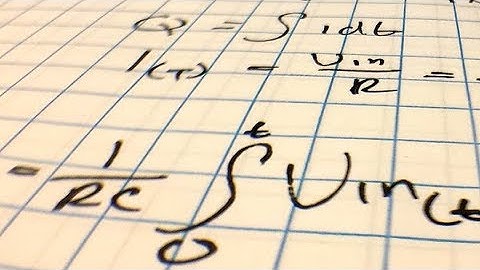 Q = ∫ i dt
I(T) = Uin/R =
= 1/RC ∫₀ᵗ Uin(t